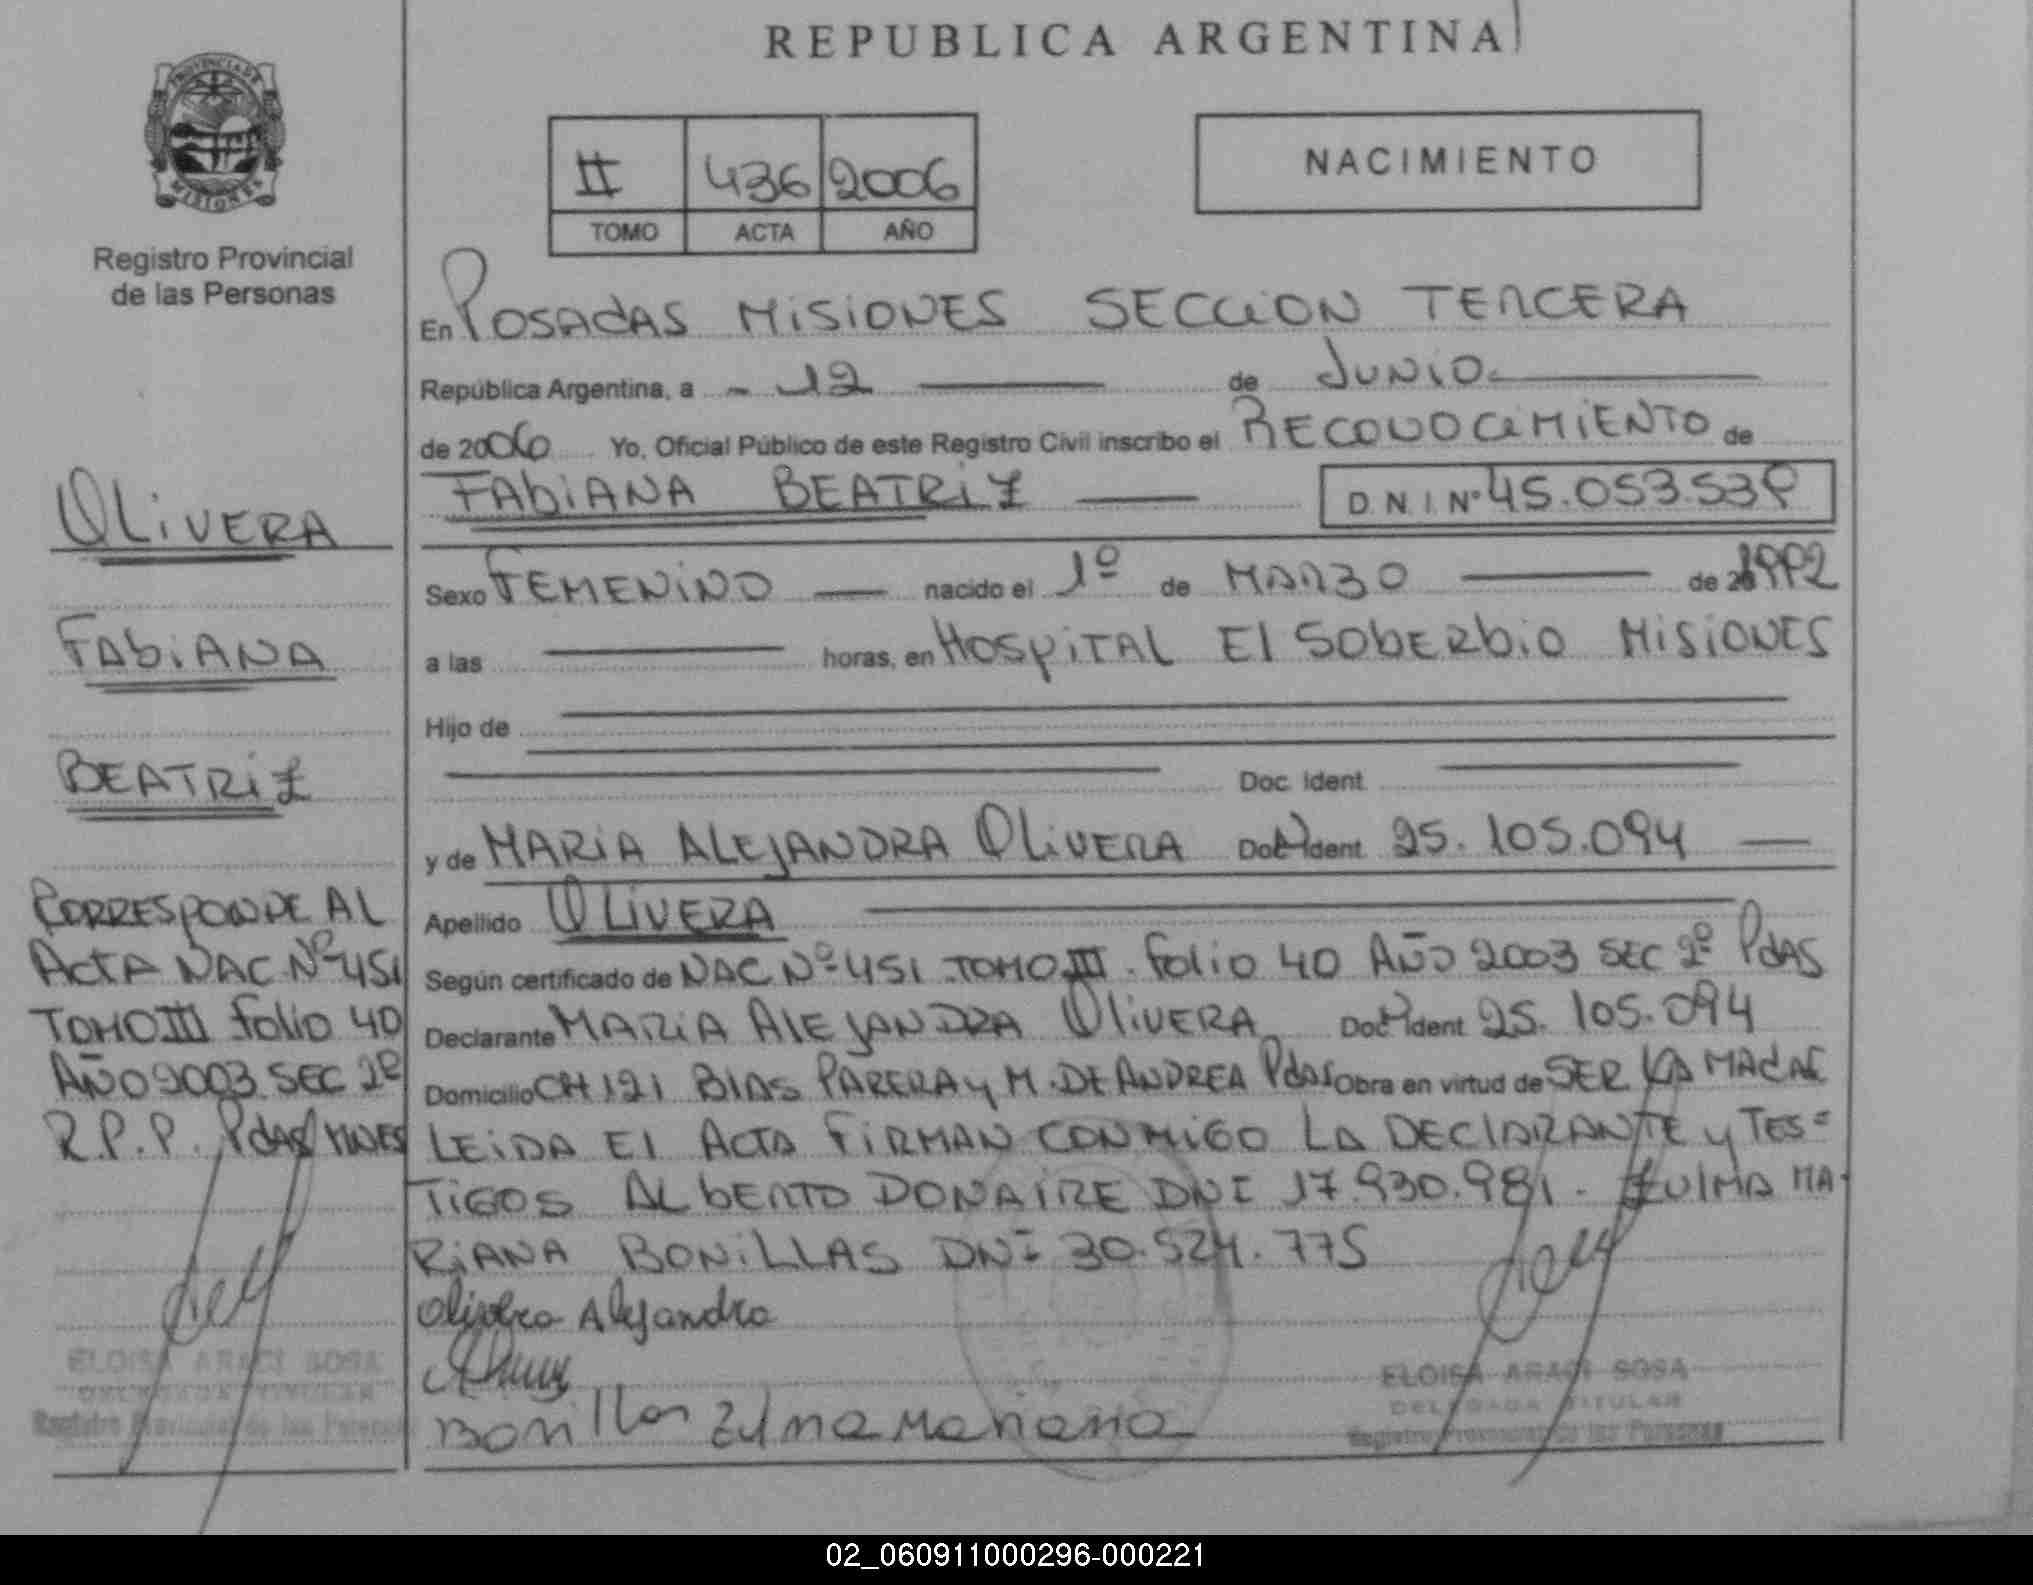 REPUBLICA ARGENTINA
PROVINCIA DE
MISIONES
Registro Provincial
de las Personas
II 436 2006
TOMO ACTA AÑO
NACIMIENTO
En POSADAS MISIONES SECCION TERCERA
República Argentina, a 12 de JUNIO
de 2006 Yo, Oficial Público de este Registro Civil inscribo el RECONOCIMIENTO de
FABIANA BEATRIZ D.N.I. Nº 45.053.539
Sexo FEMENINO nacido el 1º de MARZO de 1992
a las horas, en HOSPITAL El SOBERBIO MISIONES
Hijo de
Doc. Ident.
y de MARIA ALEJANDRA OLIVERA Doc. Ident. 25.105.094
Apellido OLIVERA
Según certificado de NAC Nº 451 TOMO III Folio 40 AÑO 2003 SEC 2º PdAS
Declarante MARIA ALEJANDRA OLIVERA Doc. Ident. 25.105.094
Domicilio CH 121 BLAS PARERA y M. DE ANDREA PdAS Obra en virtud de SER LA MADRE
LEIDA El ACTA FIRMAN CONMIGO LA DECLARANTE y TES=
TIGOS ALBERTO DONAIRE DNI 17.930.981. ZULMA MA-
RIANA BONILLAS DNI 30.524.775
Olivera Alejandra
Bonillas Zulma Mariana
ELOISA ARACI SOSA
DELEGADA TITULAR
Registro Provincial de las Personas
OLIVERA
FABIANA
BEATRIZ
CORRESPONDE AL
ACTA NAC Nº 451
TOMO III Folio 40
AÑO 2003 SEC 2º
R.P.P. PdAS MNES
ELOISA ARACI SOSA
DELEGADA TITULAR
Registro Provincial de las Personas
02_060911000296-000221